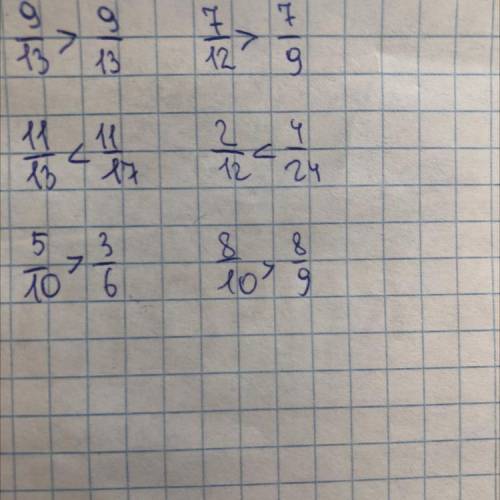 9/13 > 9/13 7/12 > 7/9
11/13 < 11/17 2/12 < 4/24
5/10 > 3/6 8/10 > 8/9